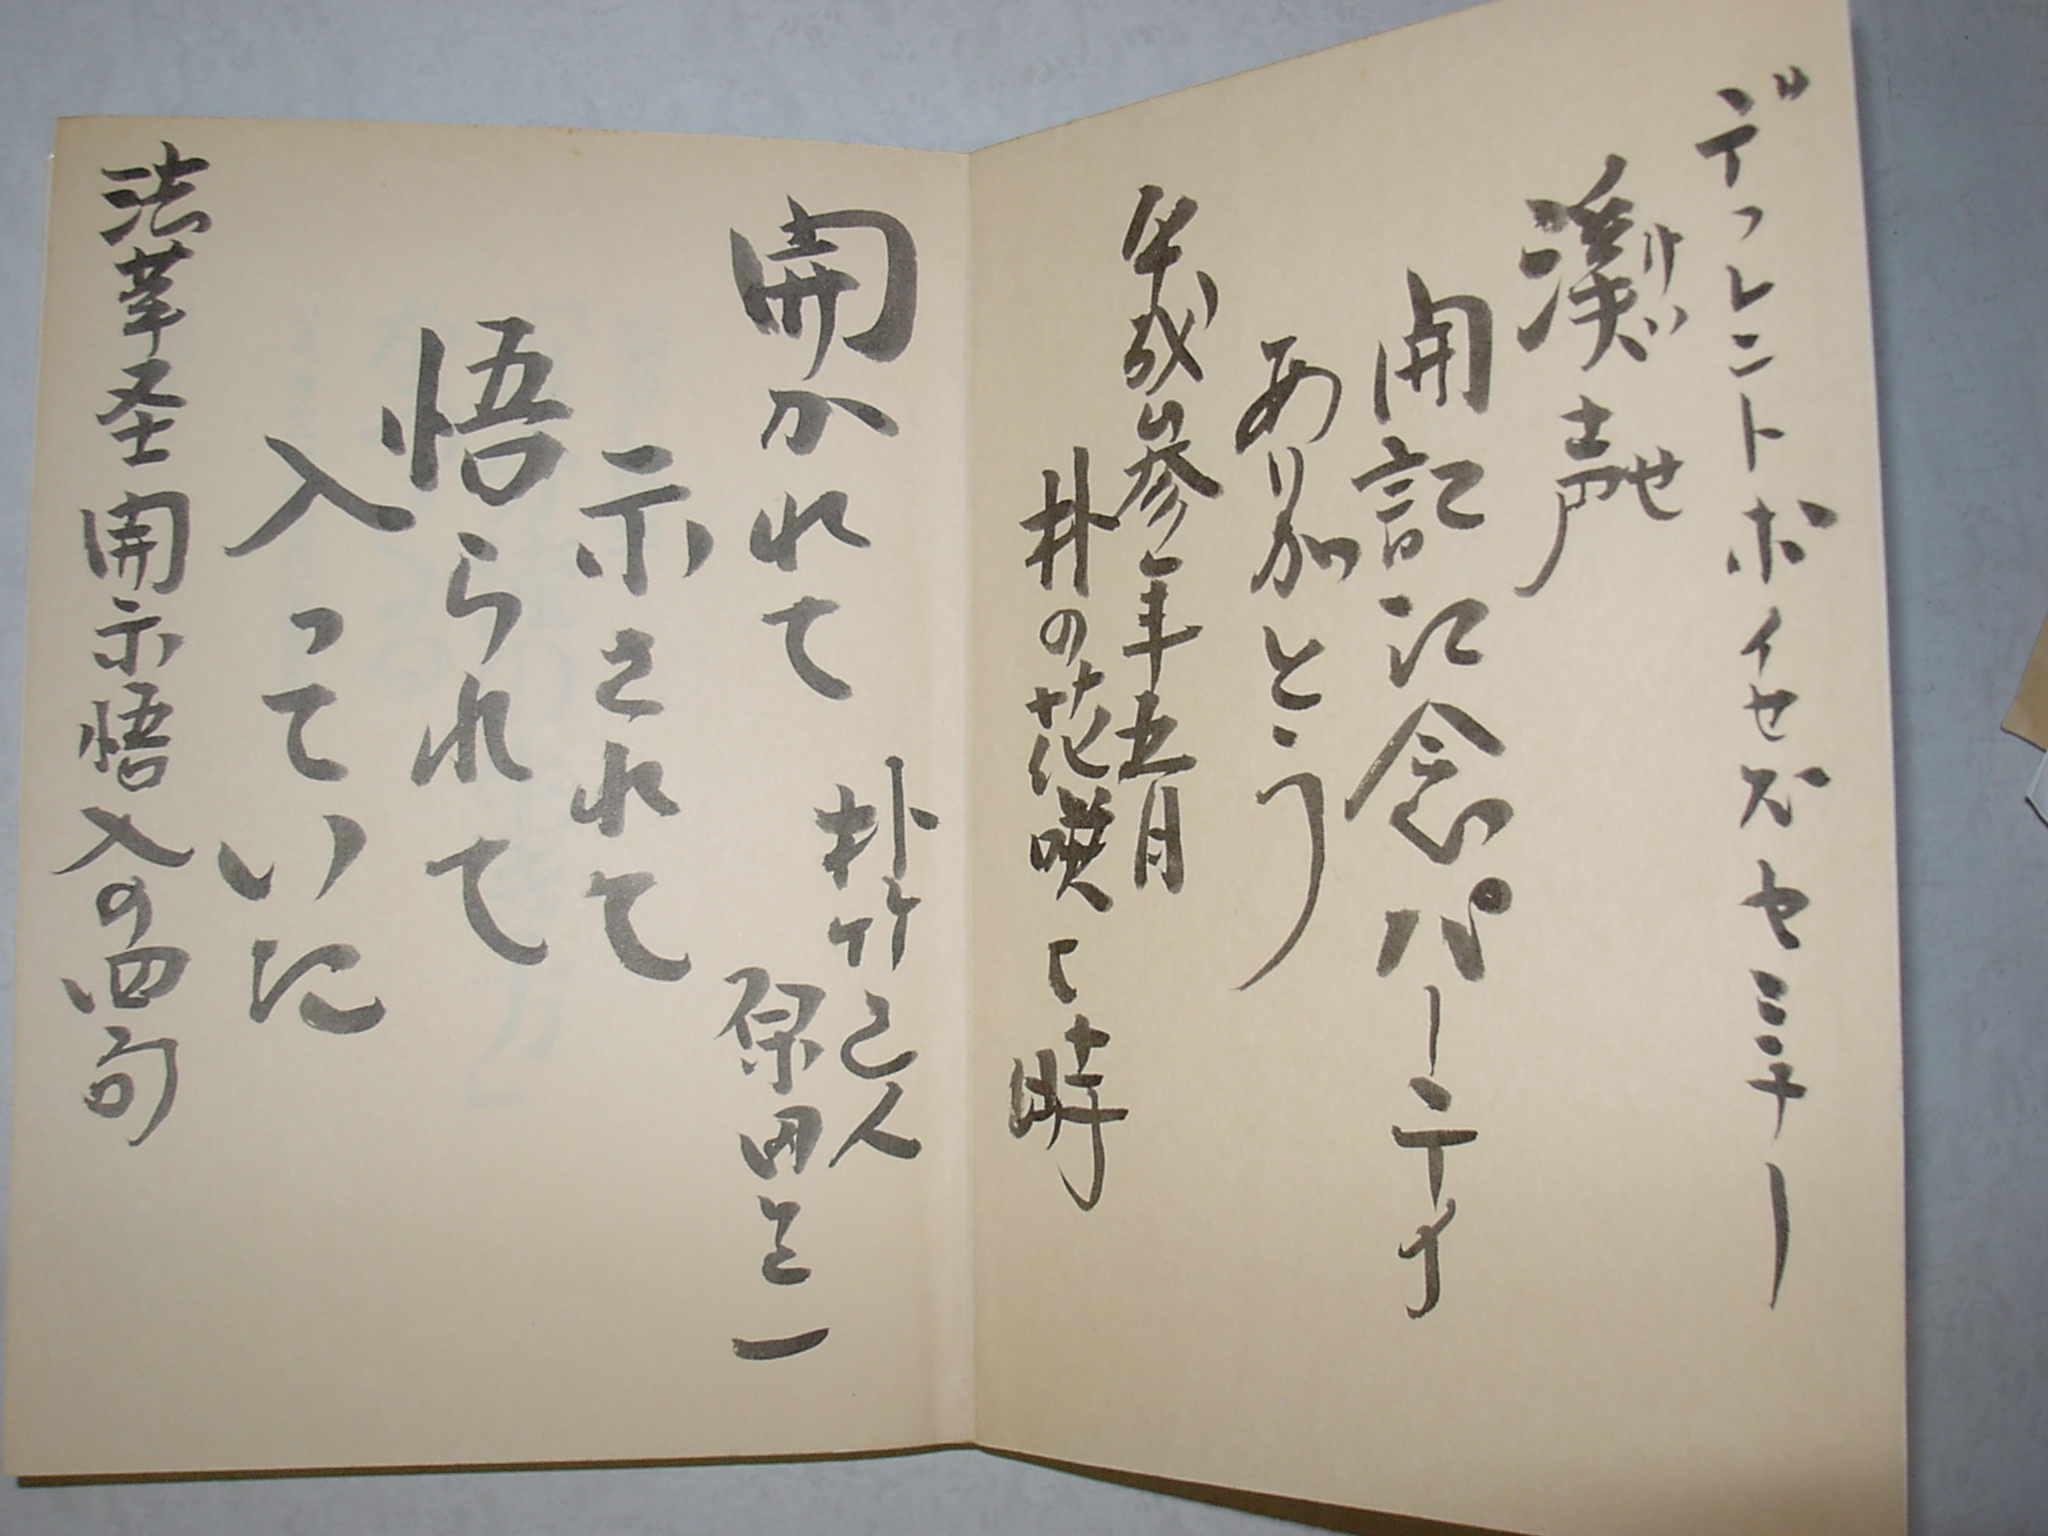 デフレントボイセズセミナー
渓声
けい
せ
開記記念パーテイ
あり加とう
平成参年五月
朴の花咲く時
朴竹己人
原田正一
開かれて
示されて
悟られて
入っていた
法華圣開示悟入の四句